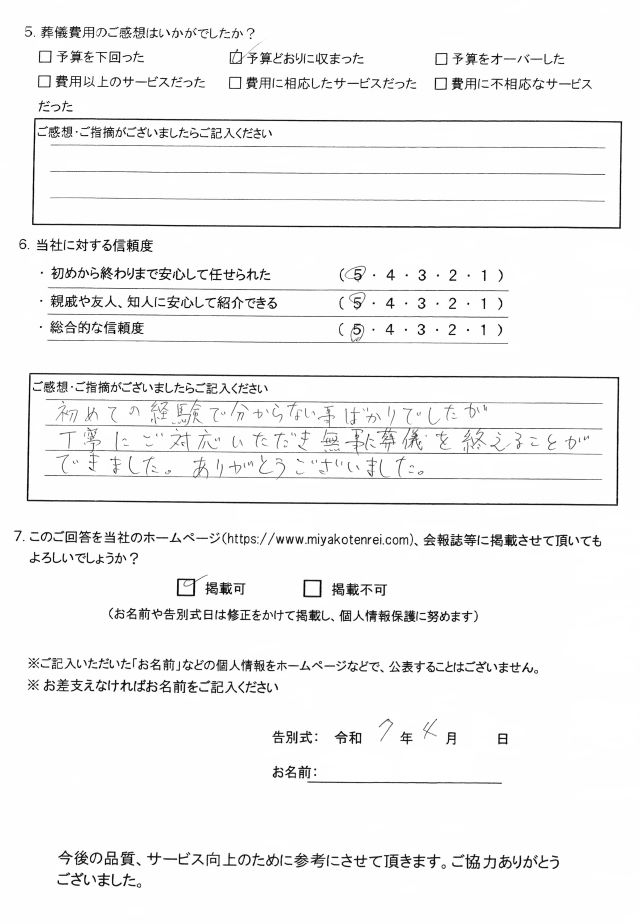 5. 葬儀費用のご感想はいかがでしたか?
□ 予算を下回った ☑ 予算どおりに収まった □ 予算をオーバーした
□ 費用以上のサービスだった □ 費用に相応したサービスだった □ 費用に不相応なサービス
だった
ご感想・ご指摘がございましたらご記入ください
6. 当社に対する信頼度
・ 初めから終わりまで安心して任せられた ( 5 ・ 4 ・ 3 ・ 2 ・ 1 )
・ 親戚や友人、知人に安心して紹介できる ( 5 ・ 4 ・ 3 ・ 2 ・ 1 )
・ 総合的な信頼度 ( 5 ・ 4 ・ 3 ・ 2 ・ 1 )
ご感想・ご指摘がございましたらご記入ください
初めての経験で分からない事ばかりでしたが
丁寧にご対応いただき無事に葬儀を終えることが
できました。ありがとうございました。
7. このご回答を当社のホームページ(https://www.miyakotenrei.com)、会報誌等に掲載させて頂いても
よろしいでしょうか?
☑ 掲載可 □ 掲載不可
(お名前や告別式日は修正をかけて掲載し、個人情報保護に努めます)
※ご記入いただいた「お名前」などの個人情報をホームページなどで、公表することはございません。
※ お差支えなければお名前をご記入ください
告別式: 令和 7 年 4 月 日
お名前:
今後の品質、サービス向上のために参考にさせて頂きます。ご協力ありがとう
ございました。